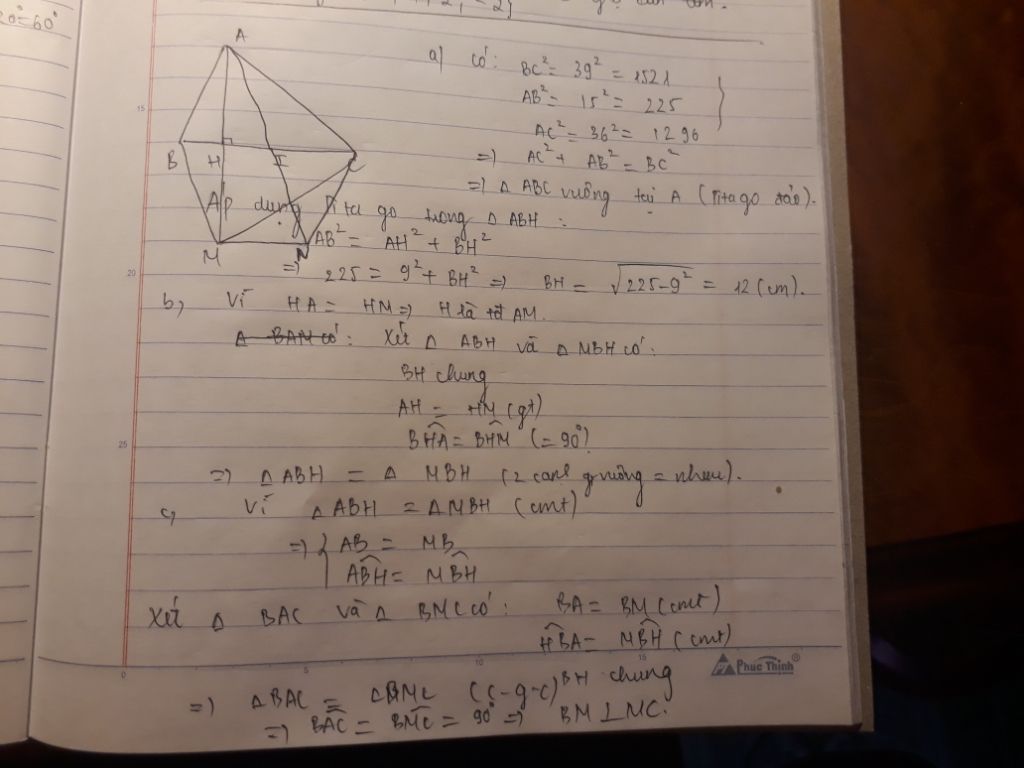 20°=60°
A
B
H
I
C
M
N
a) có: BC² = 39² = 1521
AB² = 15² = 225
AC² = 36² = 1296
=) AC² + AB² = BC²
=) Δ ABC vuông tại A (Pitago đảo).
Áp dụng Pita go trong Δ ABH :
AB² = AH² + BH²
=) 225 = 9² + BH² =) BH = √225-9² = 12 (cm).
b, Vì HA = HM =) H là tđ AM.
Δ BAM có: Xét Δ ABH và Δ MBH có:
BH chung
AH = HM (gt)
BHA = BHM (= 90°)
=) Δ ABH = Δ MBH (2 cạnh g vuông = nhau).
c, Vì Δ ABH = Δ MBH (cmt)
=) { AB = MB
ABH = MBH
Xét Δ BAC và Δ BMC có: BA = BM (cmt)
HBA = MBH (cmt)
BH chung
=) Δ BAC = Δ BMC (c-g-c)
=) BAC = BMC = 90° =) BM ⊥ MC.
Phuc Thinh®
15
20
25
0
5
10
15